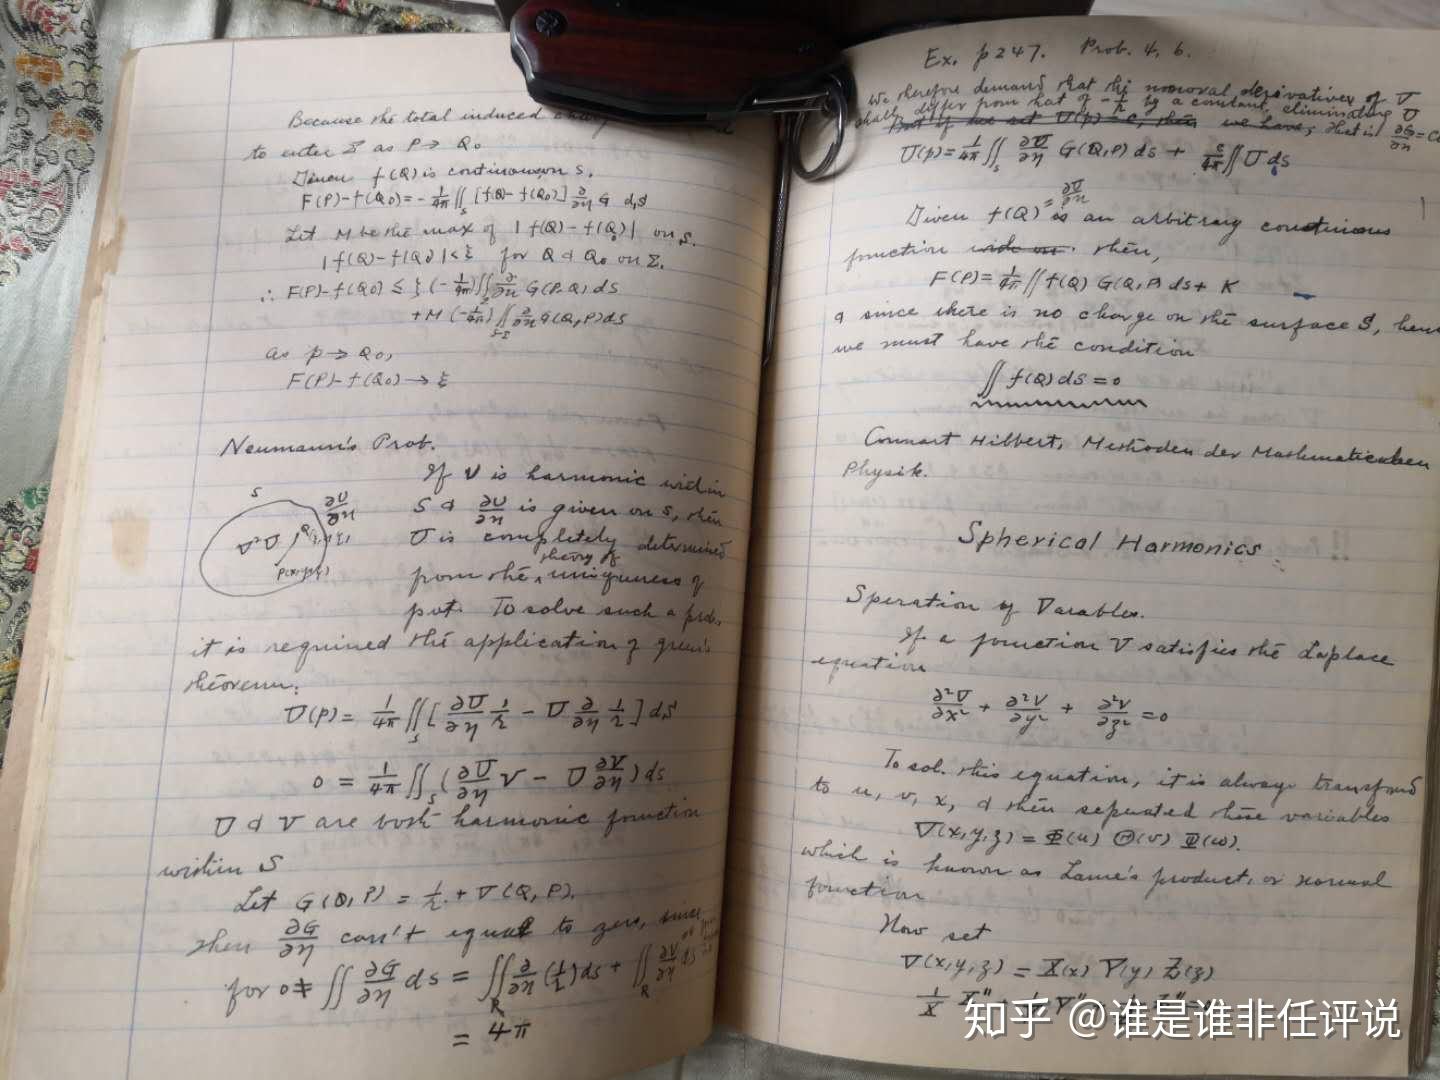 Because the total induced
to enter Σ as P→Q₀
Given f(Q) is continuous on S.
F(P)-f(Q₀) = -1/4π ∬_S [f(Q)-f(Q₀)] ∂/∂n G dS
Let M be the max of |f(Q)-f(Q₀)| on S.
|f(Q)-f(Q₀)|<ξ for Q & Q₀ on Σ.
∴ F(P)-f(Q₀) ≤ ξ (-1/4π) ∬_Σ ∂/∂n G(P,Q) dS
+M (-1/4π) ∬_{S-Σ} ∂/∂n G(Q,P) dS
as p→Q₀,
F(P)-f(Q₀)→ξ
Neumann's Prob.
If U is harmonic within
S & ∂U/∂n is given on S, then
U is completely determined
from the theory of uniqueness of
pot. To solve such a prob.
it is required the application of green's
theorem.
S
∂U/∂n
∇²U
U(P) = 1/4π ∬_S [∂U/∂n 1/r - U ∂/∂n 1/r] dS
0 = 1/4π ∬_S (∂U/∂n V - U ∂V/∂n) ds
U & V are both harmonic function
within S
Let G(Q,P) = 1/r + V(Q,P).
then ∂G/∂n can't equal to zero, since
for 0≠ ∬ ∂G/∂n ds = ∬_R ∂/∂n (1/r) ds + ∬_R ∂V/∂n ds
= 4π
Ex. p247. Prob. 4, 6.
We therefore demand that the normal derivatives of V
shall differ from that of -1/r by a constant, eliminating U
that is ∂G/∂n = C
U(p) = 1/4π ∬_S ∂U/∂n G(Q,P) ds + c/4π ∬ U ds
Given f(Q) = ∂U/∂n is an arbitrary continuous
function then,
F(P) = 1/4π ∬ f(Q) G(Q,P) ds + K
& since there is no charge on the surface S, hence
we must have the condition
∬ f(Q) dS = 0
Connart Hilbert, Methoden der Mathematicschen
Physik.
Spherical Harmonics
Speration of Varables.
If a function V satisfies the Laplace
equation
∂²V/∂x² + ∂²V/∂y² + ∂²V/∂z² = 0
To sol. this equation, it is always transfomd
to u, v, x, & then seperated these variables
V(x,y,z) = Φ(u) Θ(v) Ψ(w).
which is known as Lame's product, or normal
function
Now set
V(x,y,z) = X(x) Y(y) Z(z)
1/X X'' + Y''
知乎 @谁是谁非任评说